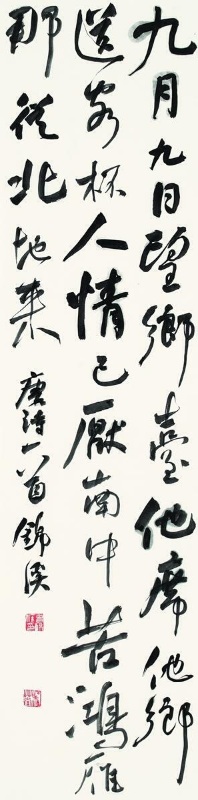 九月九日望鄉臺他席他鄉
送客杯人情已厭南中苦鴻雁
那從北地来
唐诗一首錦溪